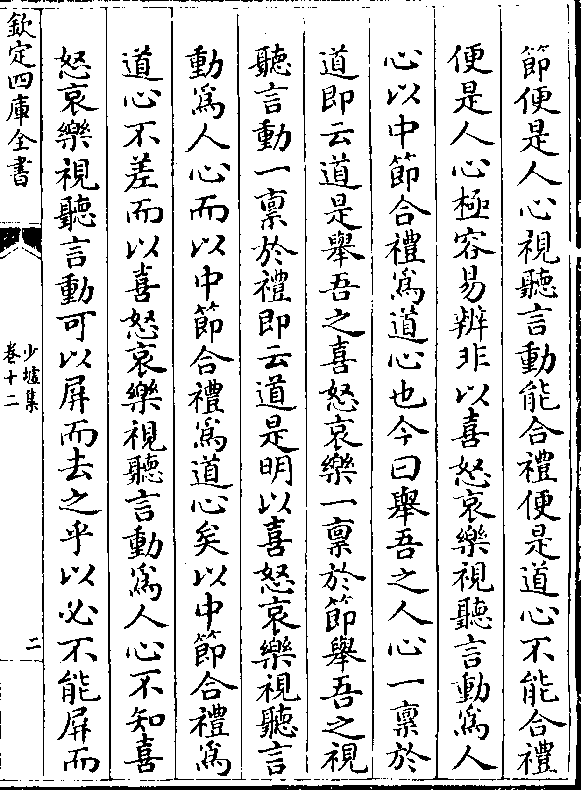 節便是人心視聽言動能合禮便是道心不能合禮
便是人心極容易辨非以喜怒哀樂視聽言動爲人
心以中節合禮爲道心也今曰舉吾之人心一稟於
道即云道是舉吾之喜怒哀樂一稟於節舉吾之視
聽言動一稟於禮即云道是明以喜怒哀樂視聽言
動爲人心而以中節合禮爲道心矣以中節合禮爲
道心不差而以喜怒哀樂視聽言動爲人心不知喜
怒哀樂視聽言動可以屏而去之乎以必不能屏而
欽定四庫全書
少墟集
卷十二
二